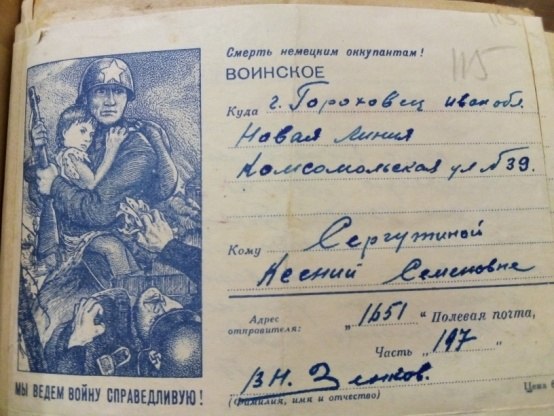 115
Смерть немецким оккупантам!
ВОИНСКОЕ
115
Куда г. Гороховец Иван обл.
Новая Линия
Комсомольская ул № 39.
Кому Сергужиной
Ксений Семеновне
Адрес отправителя: „1651“ Полевая почта,
Часть „197“
(Фамилия, имя и отчество)
Цена
МЫ ВЕДЕМ ВОЙНУ СПРАВЕДЛИВУЮ!